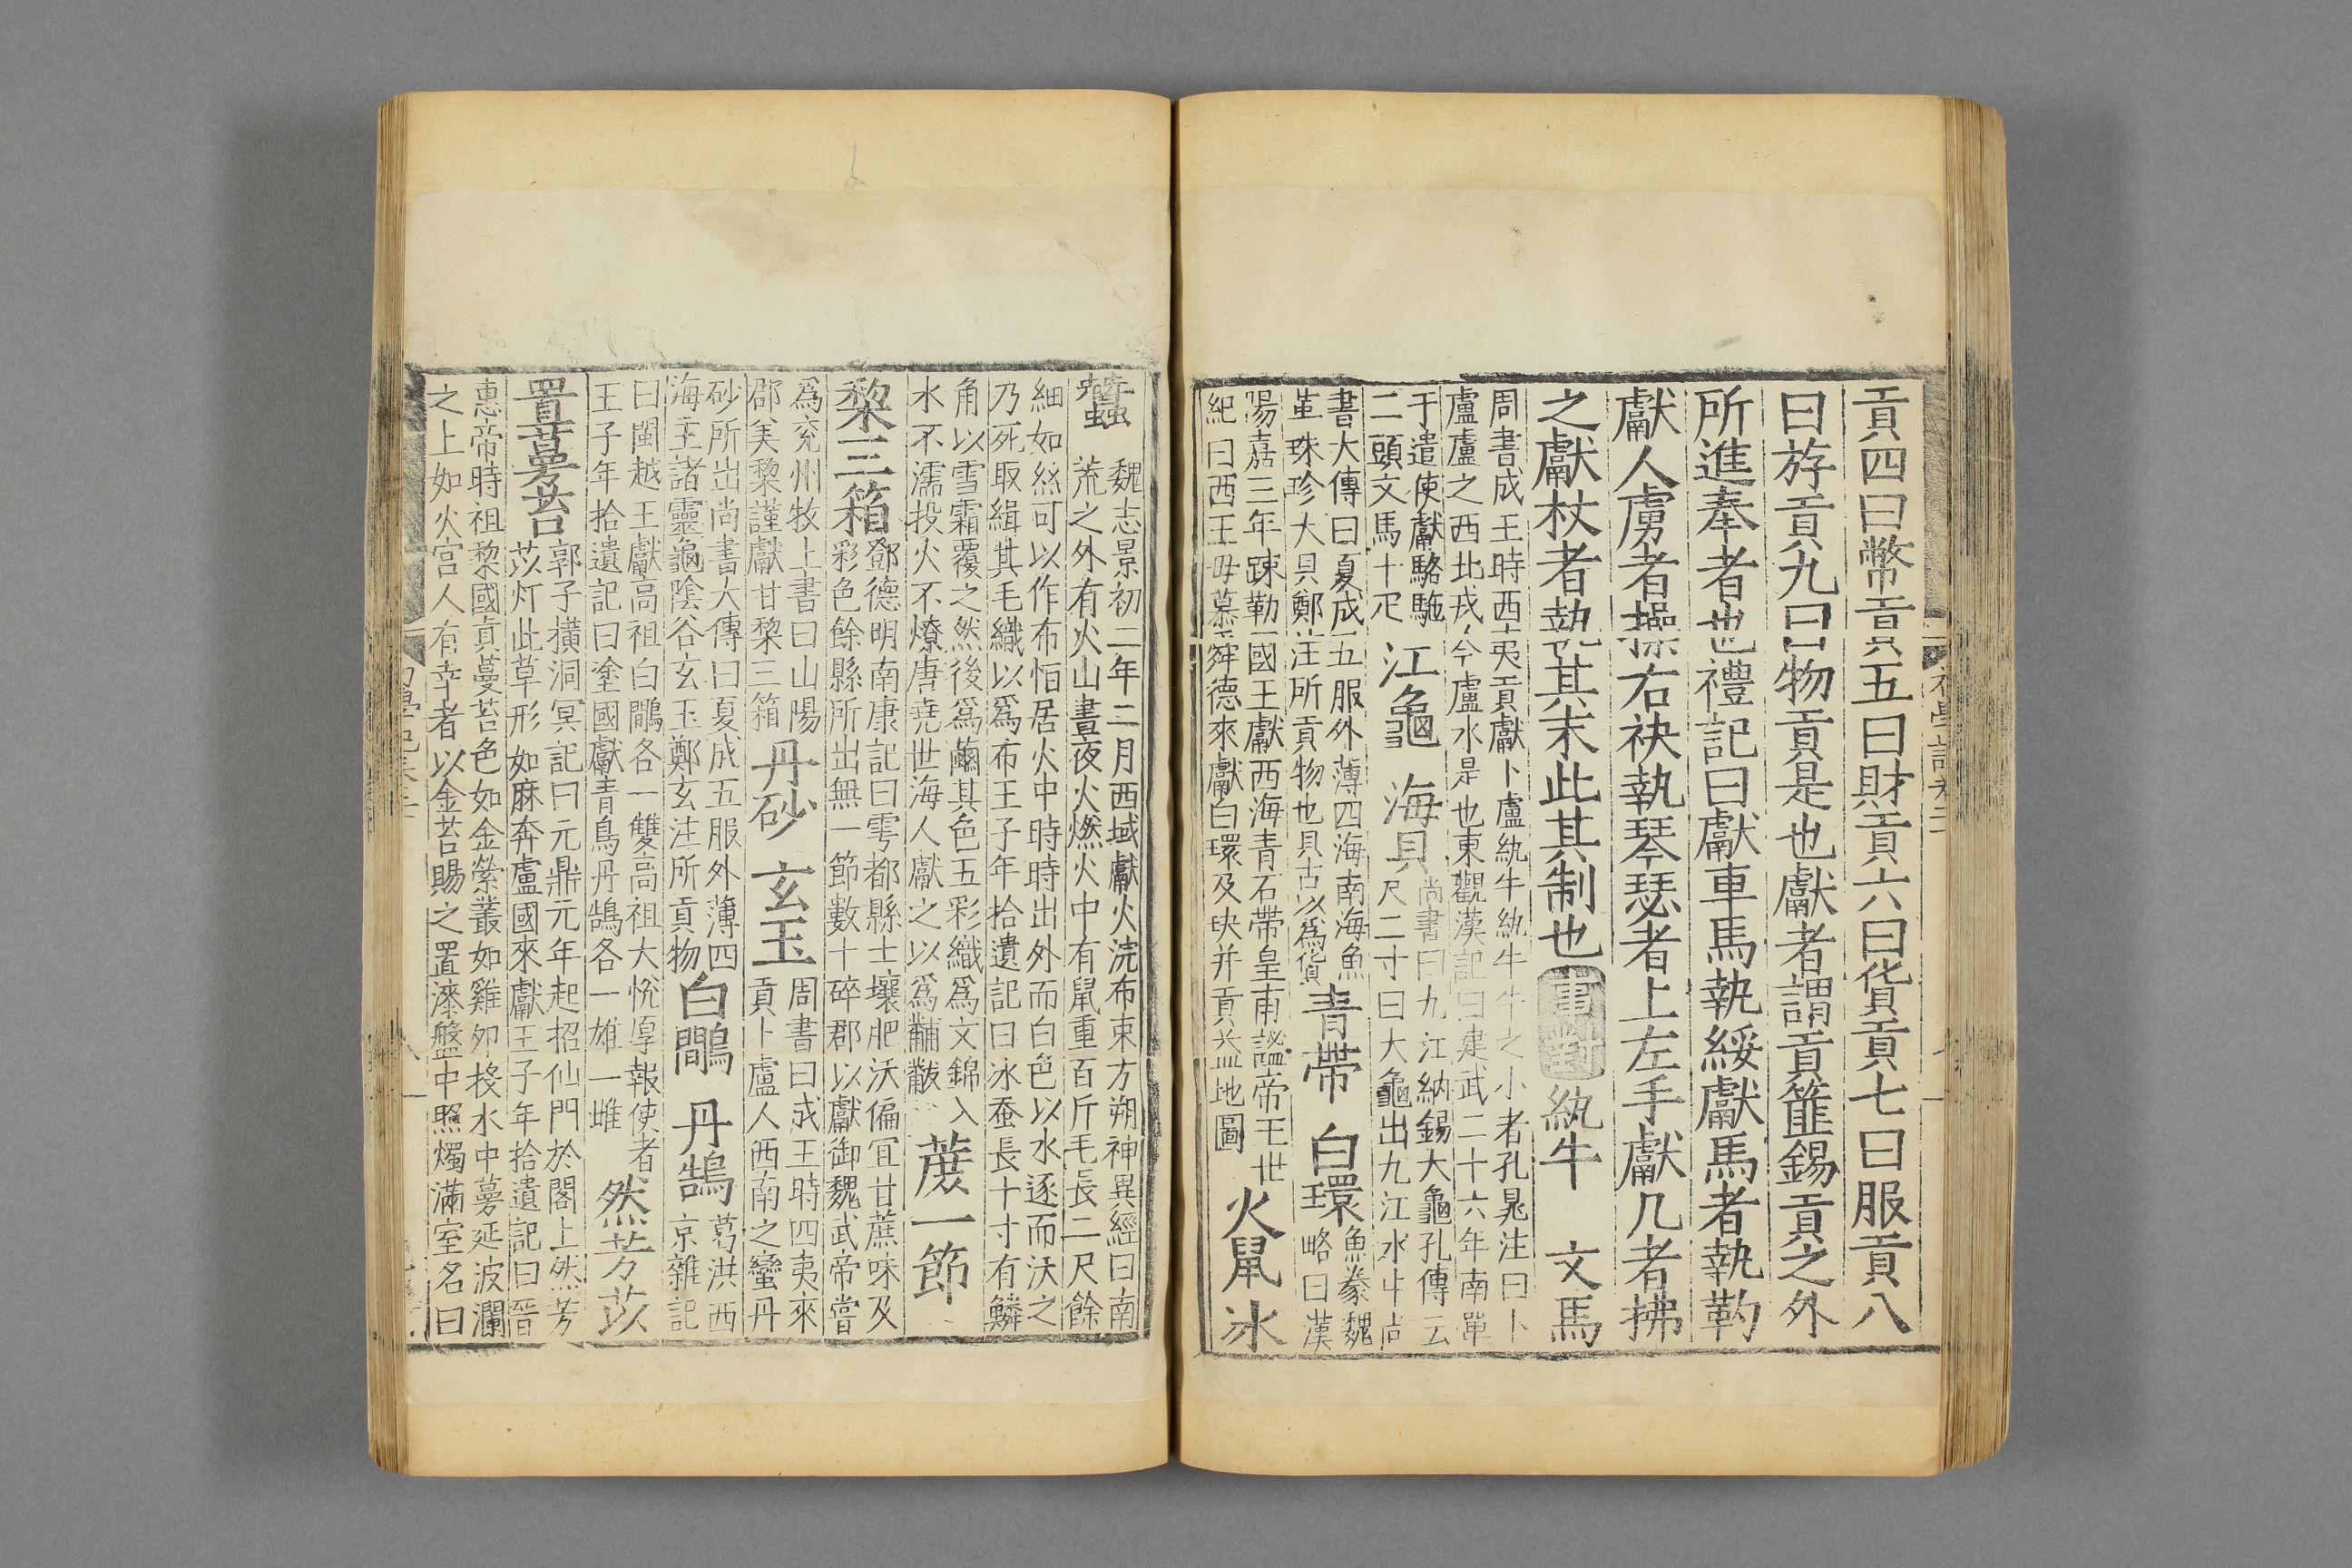 貢四曰幣貢五曰財貢六曰貨貢七曰服貢八
曰斿貢九曰物貢是也獻者謂貢篚錫貢之外
所進奉者也禮記曰獻車馬執綏獻馬者執靮
獻人虜者操右袂執琴瑟者上左手獻几者拂
之獻杖者執其末此其制也事對紈牛 文馬
周書成王時西夷貢獻卜盧紈牛紈牛牛之小者孔晁注曰卜
盧盧之西北戎今盧水是也東觀漢記曰建武二十六年南單
于遣使獻駱駞
二頭文馬十疋
江龜 海貝
尚書曰九江納錫大龜孔傳云
尺二寸曰大龜出九江水中尚
書大傳曰夏成五服外薄四海南海魚
革珠珍大貝鄭注所貢物也貝古以爲貨
青帶 白環
魚豢魏
略曰漢
陽嘉三年踈勒國王獻西海青石帶皇甫謐帝王世
紀曰西王母慕舜德來獻白環及玦并貢益地圖
火鼠 冰
蠶
魏志景初二年二月西域獻火浣布東方朔神異經曰南
荒之外有火山晝夜火燃火中有鼠重百斤毛長二尺餘
細如絲可以作布恒居火中時時出外而白色以水逐而沃之
乃死取緝其毛織以爲布王子年拾遺記曰冰蚕長十寸有鱗
角以雪霜覆之然後爲繭其色五彩織爲文錦入
水不濡投火不燎唐堯世海人獻之以爲黼黻
蔗一節
黎三箱
鄧德明南康記曰雩都縣土壤肥沃偏宜甘蔗味及
彩色餘縣所出無一節數十碎郡以獻御魏武帝嘗
爲兖州牧上書曰山陽
郡美黎謹獻甘黎三箱
丹砂 玄玉
周書曰成王時四夷來
貢卜盧人西南之蠻丹
砂所出尚書大傳曰夏成五服外薄四
海主諸靈龜陰谷玄玉鄭玄注所貢物
白鷴 丹鵠
葛洪西
京雜記
曰閩越王獻高祖白鷴各一雙高祖大悅厚報使者
王子年拾遺記曰塗國獻青鳥丹鵠各一雄一雌
然芳苡
置蔓苔
郭子橫洞冥記曰元鼎元年起招仙門於閣上然芳
苡灯此草形如麻奔盧國來獻王子年拾遺記曰晉
惠帝時祖黎國貢蔓苔色如金縈叢如雞夘投水中蔓延波瀾
之上如火宮人有幸者以金苔賜之置漆盤中照燭滿室名曰